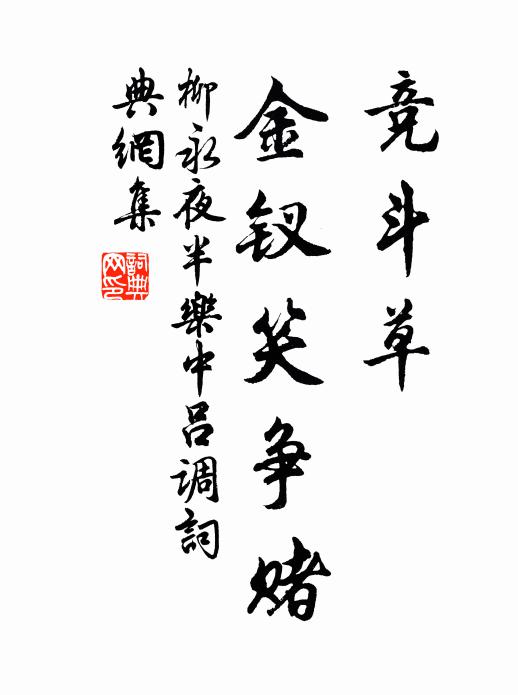 竞斗草
金钗笑争赌
柳永夜半樂中吕调詞
典網集
詞典
网印